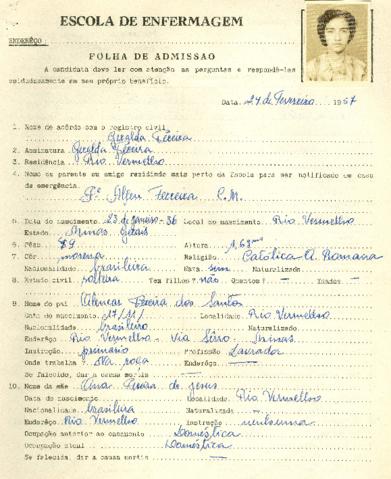 ESCOLA DE ENFERMAGEM
ENDERÊÇO:
FOLHA DE ADMISSÃO
A candidata deve ler com atenção as perguntas e respondê-las
cuidadosamente em seu próprio benefício.
Data, 24 de Fevereiro 1957
1. Nome de acôrdo com o registro civil
Geralda Pereira
2. Assinatura Geralda Pereira
3. Residência Rio Vermelho
4. Nome do parente ou amigo residindo mais perto da Escola para ser notificado em caso
de emergência.
Pe. Ferreira C.M.
5. Data do nascimento 23 de janeiro - 36 Local do nascimento Rio Vermelho
Estado Minas Gerais
6. Pêso 59 Altura 1,63
7. Côr morena Religião Católica A. Romana
Nacionalidade brasileira Nata sim Naturalizada
8. Estado civil solteira Tem filhos? não Quantos? — Idades —
9. Nome do pai Pereira dos Santos
Data do nascimento Localidade Rio Vermelho
Nacionalidade brasileiro Naturalizado
Enderêço Rio Vermelho - Via Sêrro - Minas
Instrução primário Profissão Lavrador
Onde trabalha? Na roça
Se falecido, dar a causa mortis —
10. Nome da mãe Pereira de Jesus
Data do nascimento Localidade Rio Vermelho
Nacionalidade brasileira Naturalizada —
Enderêço Rio Vermelho Instrução nenhuma
Ocupação anterior ao casamento Doméstica
Ocupação atual Doméstica
Se falecida, dar a causa mortis —